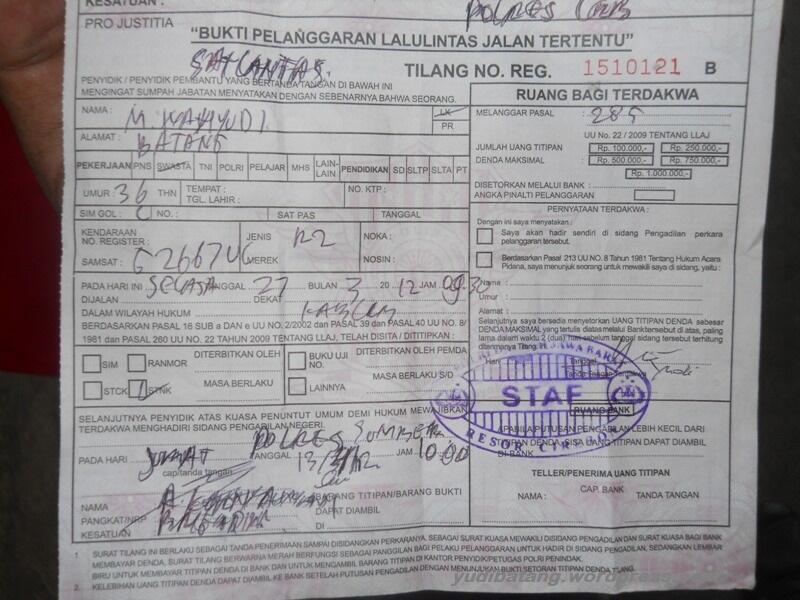 KESATUAN : POLRES CRB
PRO JUSTITIA
"BUKTI PELANGGARAN LALULINTAS JALAN TERTENTU"
SATLANTAS.
TILANG NO. REG. 1510121 B
PENYIDIK / PENYIDIK PEMBANTU YANG BERTANDA TANGAN DI BAWAH INI
MENGINGAT SUMPAH JABATAN MENYATAKAN DENGAN SEBENARNYA BAHWA SEORANG.
NAMA : M WAHYUDI LK
PR
ALAMAT : BATANG
PEKERJAAN PNS SWASTA TNI POLRI PELAJAR MHS LAIN-LAIN PENDIDIKAN SD SLTP SLTA PT
UMUR 36 THN TEMPAT : NO. KTP :
TGL. LAHIR :
SIM GOL : C NO. : SAT PAS TANGGAL
KENDARAAN JENIS R2 NOKA :
NO. REGISTER :
SAMSAT : MEREK NOSIN :
PADA HARI INI SELASA TANGGAL 27 BULAN 3 2012 JAM 09.30
DIJALAN DEKAT
DALAM WILAYAH HUKUM
BERDASARKAN PASAL 16 SUB a DAN e UU NO. 2/2002 dan PASAL 39 dan PASAL 40 UU NO. 8/
1981 dan PASAL 260 UU NO. 22 TAHUN 2009 TENTANG LLAJ, TELAH DISITA / DITITIPKAN :
SIM RANMOR DITERBITKAN OLEH BUKU UJI NO. DITERBITKAN OLEH PEMDA
STCK STNK MASA BERLAKU LAINNYA MASA BERLAKU S/D
SELANJUTNYA PENYIDIK ATAS KUASA PENUNTUT UMUM DEMI HUKUM MEWAJIBKAN
TERDAKWA MENGHADIRI SIDANG PENGADILAN NEGERI.
POLRES SUMBER
PADA HARI JUMAT TANGGAL JAM 10.00
cap/tanda tangan
NAMA BARANG TITIPAN/BARANG BUKTI
PANGKAT/NRP DAPAT DIAMBIL
KESATUAN DI
RUANG BAGI TERDAKWA
MELANGGAR PASAL : 285
UU No. 22 / 2009 TENTANG LLAJ
JUMLAH UANG TITIPAN Rp. 100.000,- Rp. 250.000,-
DENDA MAKSIMAL Rp. 500.000,- Rp. 750.000,-
Rp. 1.000.000,-
DISETORKAN MELALUI BANK :
ANGKA PINALTI PELANGGARAN
PERNYATAAN TERDAKWA :
Dengan ini saya menyatakan :
Saya akan hadir sendiri di sidang Pengadilan perkara
pelanggaran tersebut.
Berdasarkan Pasal 213 UU No. 8 Tahun 1981 Tentang Hukum Acara
Pidana, saya menunjuk seorang untuk mewakili saya di sidang, yaitu :
Nama :
Umur :
Alamat :
Selanjutnya saya bersedia menyetorkan UANG TITIPAN DENDA sebesar
DENDA MAKSIMAL yang tertulis diatas melalui Bank tersebut di atas, paling
lama dalam waktu 2 (dua) hari sebelum tanggal sidang tersebut terhitung
diterimanya Tilang ini.
Hari Tanggal
JAWA BARAT
STAF
RESOR CIREBON
RUANG BANK
APABILA PUTUSAN PENGADILAN LEBIH KECIL DARI
TITIPAN DENDA, SISA UANG TITIPAN DAPAT DIAMBIL
DI BANK
TELLER/PENERIMA UANG TITIPAN
CAP. BANK
NAMA : TANDA TANGAN
1. SURAT TILANG INI BERLAKU SEBAGAI TANDA PENERIMAAN SAMPAI DISIDANGKAN PERKARANYA, SEBAGAI SURAT KUASA MEWAKILI DISIDANG PENGADILAN DAN SURAT KUASA BAGI BANK
MEMBAYAR DENDA, SURAT TILANG BERWARNA MERAH BERFUNGSI SEBAGAI PANGGILAN BAGI PELAKU PELANGGARAN UNTUK HADIR DI SIDANG PENGADILAN, SEDANGKAN LEMBAR
BIRU UNTUK MEMBAYAR TITIPAN DENDA DI BANK DAN UNTUK MENGAMBIL BARANG TITIPAN DI KANTOR PENYIDIK/PETUGAS POLRI PENINDAK.
2. KELEBIHAN UANG TITIPAN DENDA DAPAT DIAMBIL KE BANK SETELAH PUTUSAN PENGADILAN DENGAN MENUNJUKAN BUKTI SETORAN TITIPAN DENDA.
yudibatang.wordpress